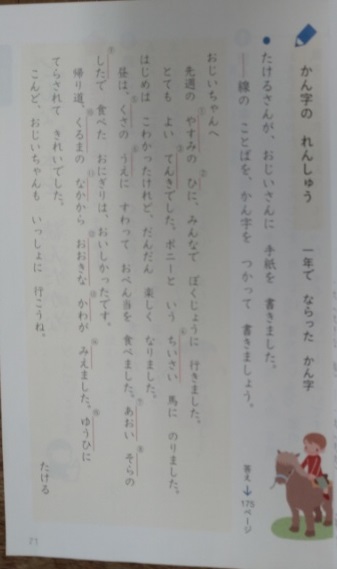 かん字の れんしゅう 一年で ならった かん字
たけるさんが、おじいさんに 手紙を 書きました。
線の ことばを、かん字を つかって 書きましょう。
答え→175ページ
おじいちゃんへ
先週の ①やすみの ②ひに、みんなで ぼくじょうに 行きました。
とても よい ③てんきでした。ポニーと いう ④ちいさい 馬に のりました。
はじめは こわかったけれど、だんだん 楽しく なりました。
昼は、⑤くさの ⑥うえに すわって おべん当を 食べました。⑦あおい ⑧そらの
⑨したで 食べた おにぎりは、おいしかったです。
帰り道、⑩くるまの ⑪なかから ⑫おおきな ⑬かわが ⑭みえました。⑮ゆうひに
てらされて きれいでした。
こんど、おじいちゃんも いっしょに 行こうね。
たける